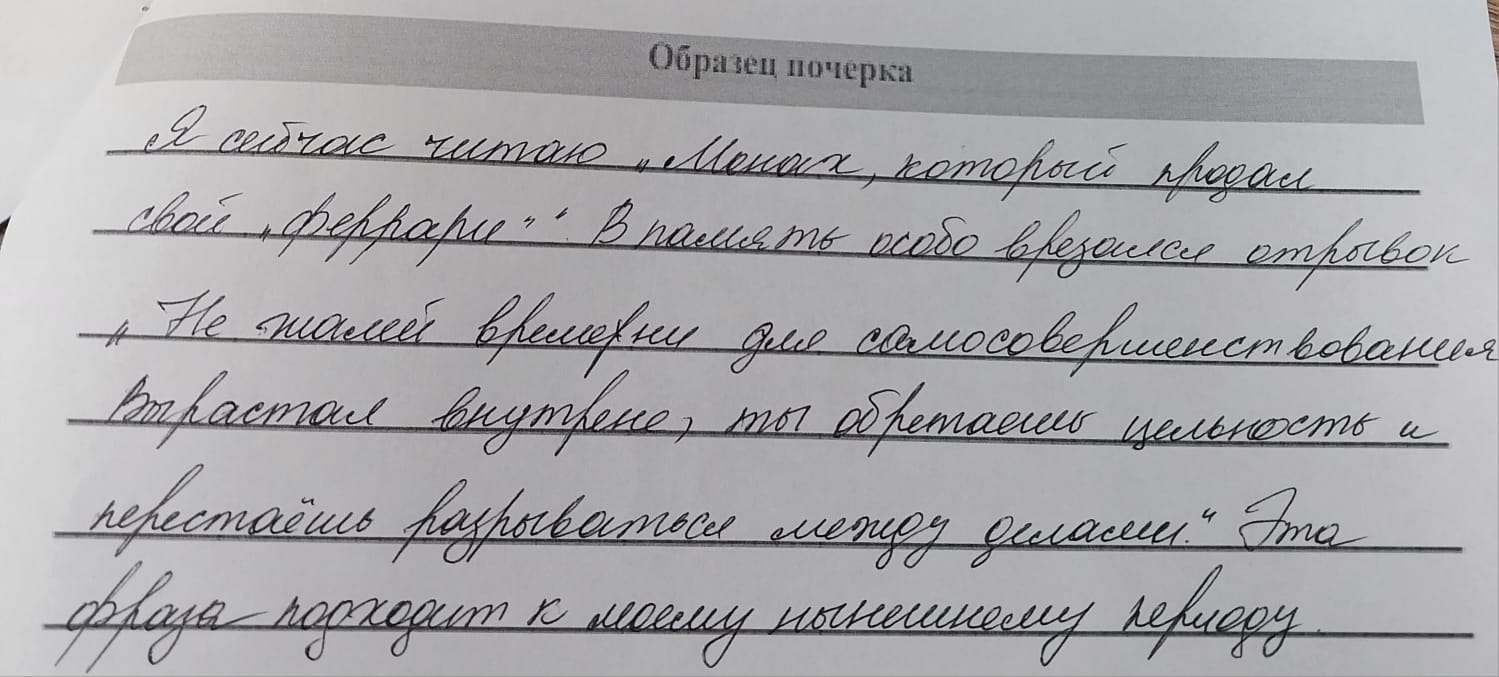 Образец почерка
Я сейчас читаю „Монах, который продал
свой „феррари"". В память особо врезался отрывок
„Не жалей времени для самосовершенствования
Вырастая внутрене, ты обретаешь цельность и
перестаёшь разрываться между делами." Эта
фраза подходит к моему нынешнему периоду.